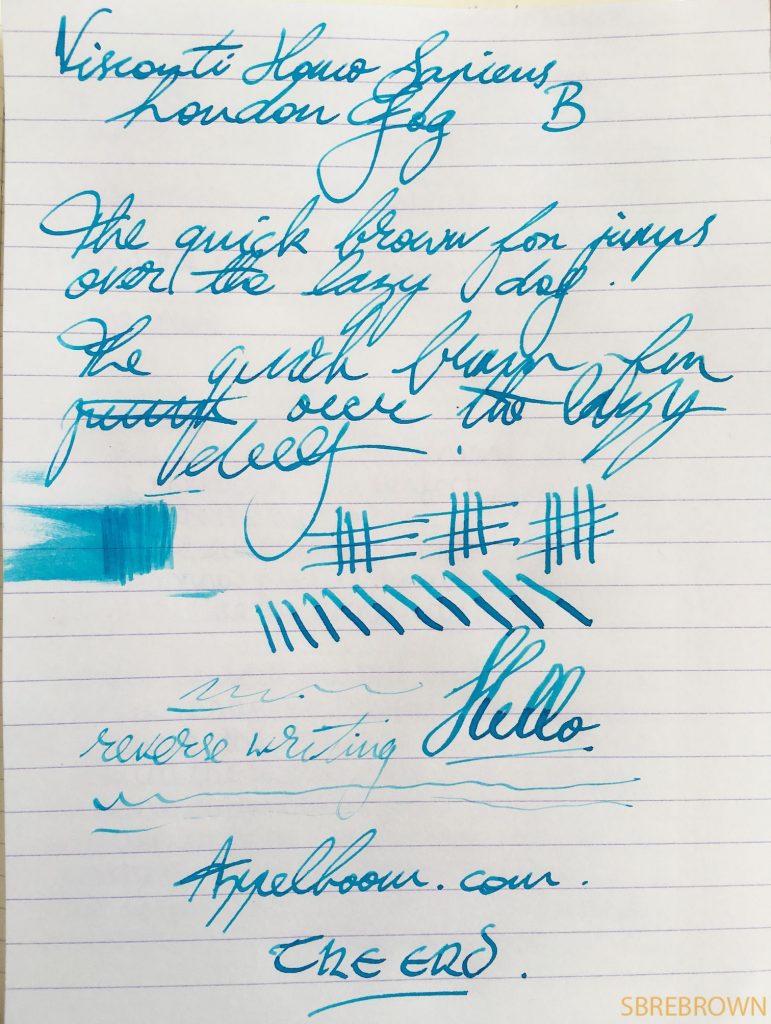 Visconti Homo Sapiens
London Fog B
The quick brown fox jumps
over the lazy dog.
The quick brown fox
jumps over the lazy
dog.
Hello
reverse writing
Appelboom.com.
THE END.
SBREBROWN